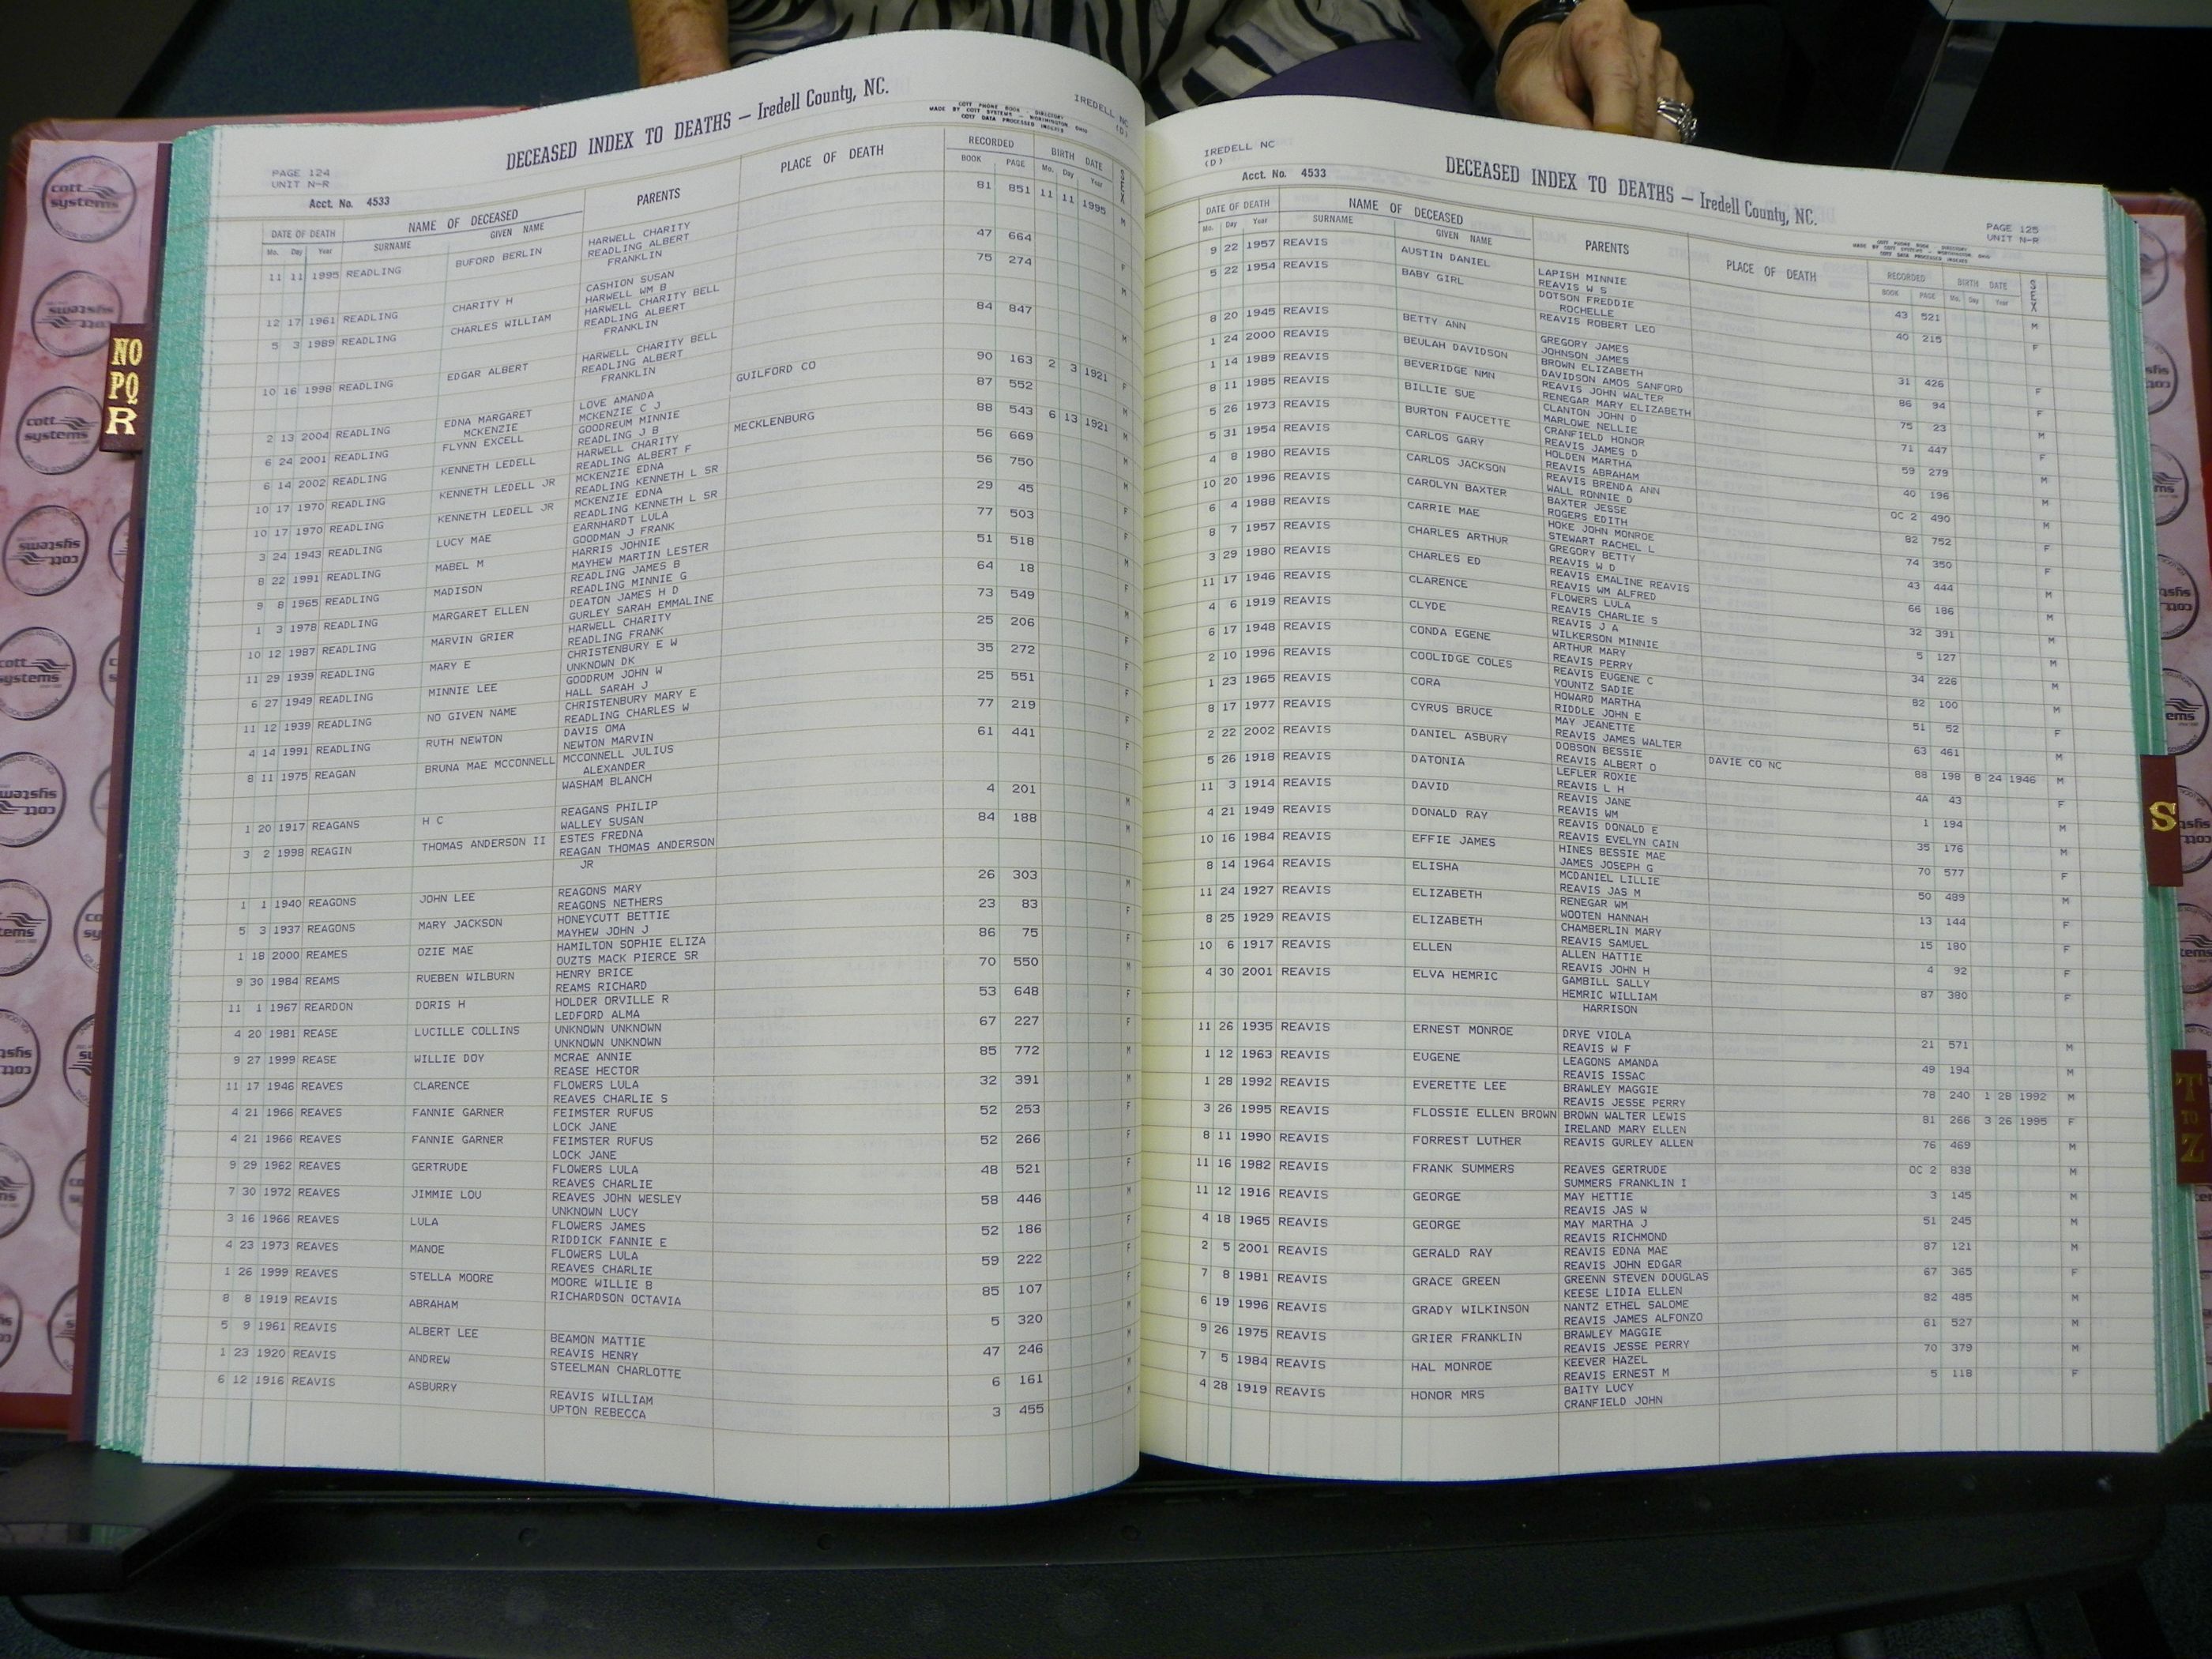 PAGE 124
UNIT N-R
Acct. No. 4533
DECEASED INDEX TO DEATHS — Iredell County, NC.
COTT PHONE BOOK - DIRECTORY
MADE BY COTT SYSTEMS - WORTHINGTON, OHIO
COTT DATA PROCESSED INDEXES
IREDELL NC
(D)
DATE OF DEATH NAME OF DECEASED PARENTS PLACE OF DEATH RECORDED BIRTH DATE SEX
Mo. Day Year SURNAME GIVEN NAME BOOK PAGE Mo. Day Year
11 11 1995 READLING BUFORD BERLIN HARWELL CHARITY 81 851 11 11 1995 M
READLING ALBERT
FRANKLIN
12 17 1961 READLING CHARITY H CASHION SUSAN 47 664 F
HARWELL WM B
5 3 1989 READLING CHARLES WILLIAM HARWELL CHARITY BELL 75 274 M
READLING ALBERT
FRANKLIN
10 16 1998 READLING EDGAR ALBERT HARWELL CHARITY BELL 84 847 M
READLING ALBERT
FRANKLIN
2 13 2004 READLING EDNA MARGARET LOVE AMANDA GUILFORD CO 90 163 2 3 1921 F
MCKENZIE MCKENZIE C J
6 24 2001 READLING FLYNN EXCELL GOODREUM MINNIE 87 552 M
READLING J B
6 14 2002 READLING KENNETH LEDELL HARWELL CHARITY MECKLENBURG 88 543 6 13 1921 M
READLING ALBERT F
10 17 1970 READLING KENNETH LEDELL JR MCKENZIE EDNA 56 669 M
READLING KENNETH L SR
10 17 1970 READLING KENNETH LEDELL JR MCKENZIE EDNA 56 750 M
READLING KENNETH L SR
3 24 1943 READLING LUCY MAE EARNHARDT LULA 29 45 F
GOODMAN J FRANK
8 22 1991 READLING MABEL M HARRIS JOHNIE 77 503 F
MAYHEW MARTIN LESTER
9 8 1965 READLING MADISON READLING JAMES B 51 518 M
READLING MINNIE G
1 3 1978 READLING MARGARET ELLEN DEATON JAMES H D 64 18 F
GURLEY SARAH EMMALINE
10 12 1987 READLING MARVIN GRIER HARWELL CHARITY 73 549 M
READLING FRANK
11 29 1939 READLING MARY E CHRISTENBURY E W 25 206 F
UNKNOWN DK
6 27 1949 READLING MINNIE LEE GOODRUM JOHN W 35 272 F
HALL SARAH J
11 12 1939 READLING NO GIVEN NAME CHRISTENBURY MARY E 25 551 F
READLING CHARLES W
4 14 1991 READLING RUTH NEWTON DAVIS OMA 77 219 F
NEWTON MARVIN
8 11 1975 REAGAN BRUNA MAE MCCONNELL MCCONNELL JULIUS 61 441 F
ALEXANDER
WASHAM BLANCH
1 20 1917 REAGANS H C REAGANS PHILIP 4 201 M
WALLEY SUSAN
3 2 1998 REAGIN THOMAS ANDERSON II ESTES FREDNA 84 188 M
REAGAN THOMAS ANDERSON
JR
1 1 1940 REAGONS JOHN LEE REAGONS MARY 26 303 M
REAGONS NETHERS
5 3 1937 REAGONS MARY JACKSON HONEYCUTT BETTIE 23 83 F
MAYHEW JOHN J
1 18 2000 REAMES OZIE MAE HAMILTON SOPHIE ELIZA 86 75 F
OUZTS MACK PIERCE SR
9 30 1984 REAMS RUEBEN WILBURN HENRY BRICE 70 550 M
REAMS RICHARD
11 1 1967 REARDON DORIS H HOLDER ORVILLE R 53 648 F
LEDFORD ALMA
4 20 1981 REASE LUCILLE COLLINS UNKNOWN UNKNOWN 67 227 F
UNKNOWN UNKNOWN
9 27 1999 REASE WILLIE DOY MCRAE ANNIE 85 772 M
REASE HECTOR
11 17 1946 REAVES CLARENCE FLOWERS LULA 32 391 M
REAVES CHARLIE S
4 21 1966 REAVES FANNIE GARNER FEIMSTER RUFUS 52 253 F
LOCK JANE
4 21 1966 REAVES FANNIE GARNER FEIMSTER RUFUS 52 266 F
LOCK JANE
9 29 1962 REAVES GERTRUDE FLOWERS LULA 48 521 F
REAVES CHARLIE
7 30 1972 REAVES JIMMIE LOU REAVES JOHN WESLEY 58 446 M
UNKNOWN LUCY
3 16 1966 REAVES LULA FLOWERS JAMES 52 186 F
RIDDICK FANNIE E
4 23 1973 REAVES MANOE FLOWERS LULA 59 222 F
REAVES CHARLIE
1 26 1999 REAVES STELLA MOORE MOORE WILLIE B 85 107 F
RICHARDSON OCTAVIA
8 8 1919 REAVIS ABRAHAM 5 320 M
5 9 1961 REAVIS ALBERT LEE BEAMON MATTIE 47 246 M
REAVIS HENRY
1 23 1920 REAVIS ANDREW STEELMAN CHARLOTTE 6 161 M
6 12 1916 REAVIS ASBURRY REAVIS WILLIAM 3 455 M
UPTON REBECCA
IREDELL NC
(D)
Acct. No. 4533
DECEASED INDEX TO DEATHS — Iredell County, NC.
PAGE 125
UNIT N-R
COTT PHONE BOOK - DIRECTORY
MADE BY COTT SYSTEMS - WORTHINGTON, OHIO
COTT DATA PROCESSED INDEXES
DATE OF DEATH NAME OF DECEASED PARENTS PLACE OF DEATH RECORDED BIRTH DATE SEX
Mo. Day Year SURNAME GIVEN NAME BOOK PAGE Mo. Day Year
9 22 1957 REAVIS AUSTIN DANIEL LAPISH MINNIE 43 521 M
REAVIS W S
5 22 1954 REAVIS BABY GIRL DOTSON FREDDIE 40 215 F
ROCHELLE
REAVIS ROBERT LEO
8 20 1945 REAVIS BETTY ANN GREGORY JAMES 31 426 F
JOHNSON JAMES
1 24 2000 REAVIS BEULAH DAVIDSON BROWN ELIZABETH 86 94 F
DAVIDSON AMOS SANFORD
1 14 1989 REAVIS BEVERIDGE NMN REAVIS JOHN WALTER 75 23 M
RENEGAR MARY ELIZABETH
8 11 1985 REAVIS BILLIE SUE CLANTON JOHN D 71 447 F
MARLOWE NELLIE
5 26 1973 REAVIS BURTON FAUCETTE CRANFIELD HONOR 59 279 M
REAVIS JAMES D
5 31 1954 REAVIS CARLOS GARY HOLDEN MARTHA 40 196 M
REAVIS ABRAHAM
4 8 1980 REAVIS CARLOS JACKSON REAVIS BRENDA ANN OC 2 490 M
WALL RONNIE D
10 20 1996 REAVIS CAROLYN BAXTER BAXTER JESSE 82 752 F
ROGERS EDITH
6 4 1988 REAVIS CARRIE MAE HOKE JOHN MONROE 74 350 F
STEWART RACHEL L
8 7 1957 REAVIS CHARLES ARTHUR GREGORY BETTY 43 444 M
REAVIS W D
3 29 1980 REAVIS CHARLES ED REAVIS EMALINE REAVIS 66 186 M
REAVIS WM ALFRED
11 17 1946 REAVIS CLARENCE FLOWERS LULA 32 391 M
REAVIS CHARLIE S
4 6 1919 REAVIS CLYDE REAVIS J A 5 127 M
WILKERSON MINNIE
6 17 1948 REAVIS CONDA EGENE ARTHUR MARY 34 226 M
REAVIS PERRY
2 10 1996 REAVIS COOLIDGE COLES REAVIS EUGENE C 82 100 M
YOUNTZ SADIE
1 23 1965 REAVIS CORA HOWARD MARTHA 51 52 F
RIDDLE JOHN E
8 17 1977 REAVIS CYRUS BRUCE MAY JEANETTE 63 461 M
REAVIS JAMES WALTER
2 22 2002 REAVIS DANIEL ASBURY DOBSON BESSIE DAVIE CO NC 88 198 8 24 1946 M
REAVIS ALBERT O
5 26 1918 REAVIS DATONIA LEFLER ROXIE 4A 43 F
REAVIS L H
11 3 1914 REAVIS DAVID REAVIS JANE 1 194 M
REAVIS WM
4 21 1949 REAVIS DONALD RAY REAVIS DONALD E 35 176 M
REAVIS EVELYN CAIN
10 16 1984 REAVIS EFFIE JAMES HINES BESSIE MAE 70 577 F
JAMES JOSEPH G
8 14 1964 REAVIS ELISHA MCDANIEL LILLIE 50 489 M
REAVIS JAS M
11 24 1927 REAVIS ELIZABETH RENEGAR WM 13 144 F
WOOTEN HANNAH
8 25 1929 REAVIS ELIZABETH CHAMBERLIN MARY 15 180 F
REAVIS SAMUEL
10 6 1917 REAVIS ELLEN ALLEN HATTIE 4 92 F
REAVIS JOHN H
4 30 2001 REAVIS ELVA HEMRIC GAMBILL SALLY 87 380 F
HEMRIC WILLIAM
HARRISON
11 26 1935 REAVIS ERNEST MONROE DRYE VIOLA 21 571 M
REAVIS W F
1 12 1963 REAVIS EUGENE LEAGONS AMANDA 49 194 M
REAVIS ISSAC
1 28 1992 REAVIS EVERETTE LEE BRAWLEY MAGGIE 78 240 1 28 1992 M
REAVIS JESSE PERRY
3 26 1995 REAVIS FLOSSIE ELLEN BROWN BROWN WALTER LEWIS 81 266 3 26 1995 F
IRELAND MARY ELLEN
8 11 1990 REAVIS FORREST LUTHER REAVIS GURLEY ALLEN 76 469 M
11 16 1982 REAVIS FRANK SUMMERS REAVES GERTRUDE OC 2 838 M
SUMMERS FRANKLIN I
11 12 1916 REAVIS GEORGE MAY HETTIE 3 145 M
REAVIS JAS W
4 18 1965 REAVIS GEORGE MAY MARTHA J 51 245 M
REAVIS RICHMOND
2 5 2001 REAVIS GERALD RAY REAVIS EDNA MAE 87 121 M
REAVIS JOHN EDGAR
7 8 1981 REAVIS GRACE GREEN GREENN STEVEN DOUGLAS 67 365 F
KEESE LIDIA ELLEN
6 19 1996 REAVIS GRADY WILKINSON NANTZ ETHEL SALOME 82 485 M
REAVIS JAMES ALFONZO
9 26 1975 REAVIS GRIER FRANKLIN BRAWLEY MAGGIE 61 527 M
REAVIS JESSE PERRY
7 5 1984 REAVIS HAL MONROE KEEVER HAZEL 70 379 M
REAVIS ERNEST M
4 28 1919 REAVIS HONOR MRS BAITY LUCY 5 118 F
CRANFIELD JOHN
NO
PQ
R
S
T
TO
Z
cott
systems